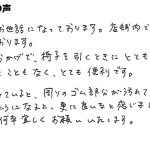 の声
お世話になっております。店舗内で
おります。
おかげで、椅子を引くときにとても
こともなく、とても便利です。
ていると、周りのゴム部分が汚れて
ようになると、更に良いなと感じまし
何卒宜しくお願いいたします。